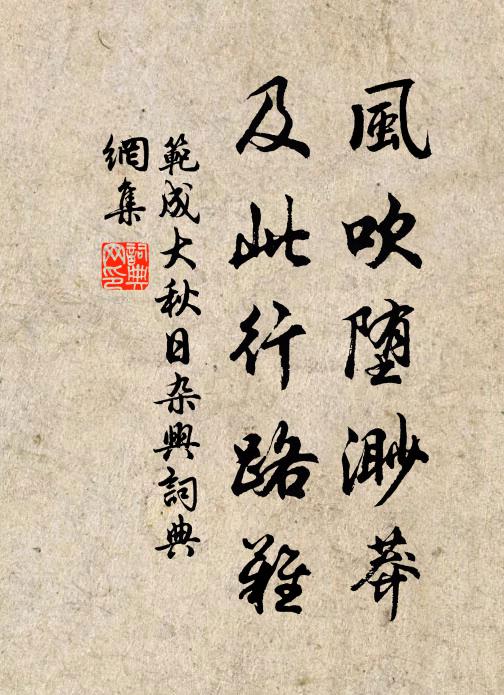 風吹堕渺莽
及此行路難
範成大秋日杂興詞典
網集
詞典
网印